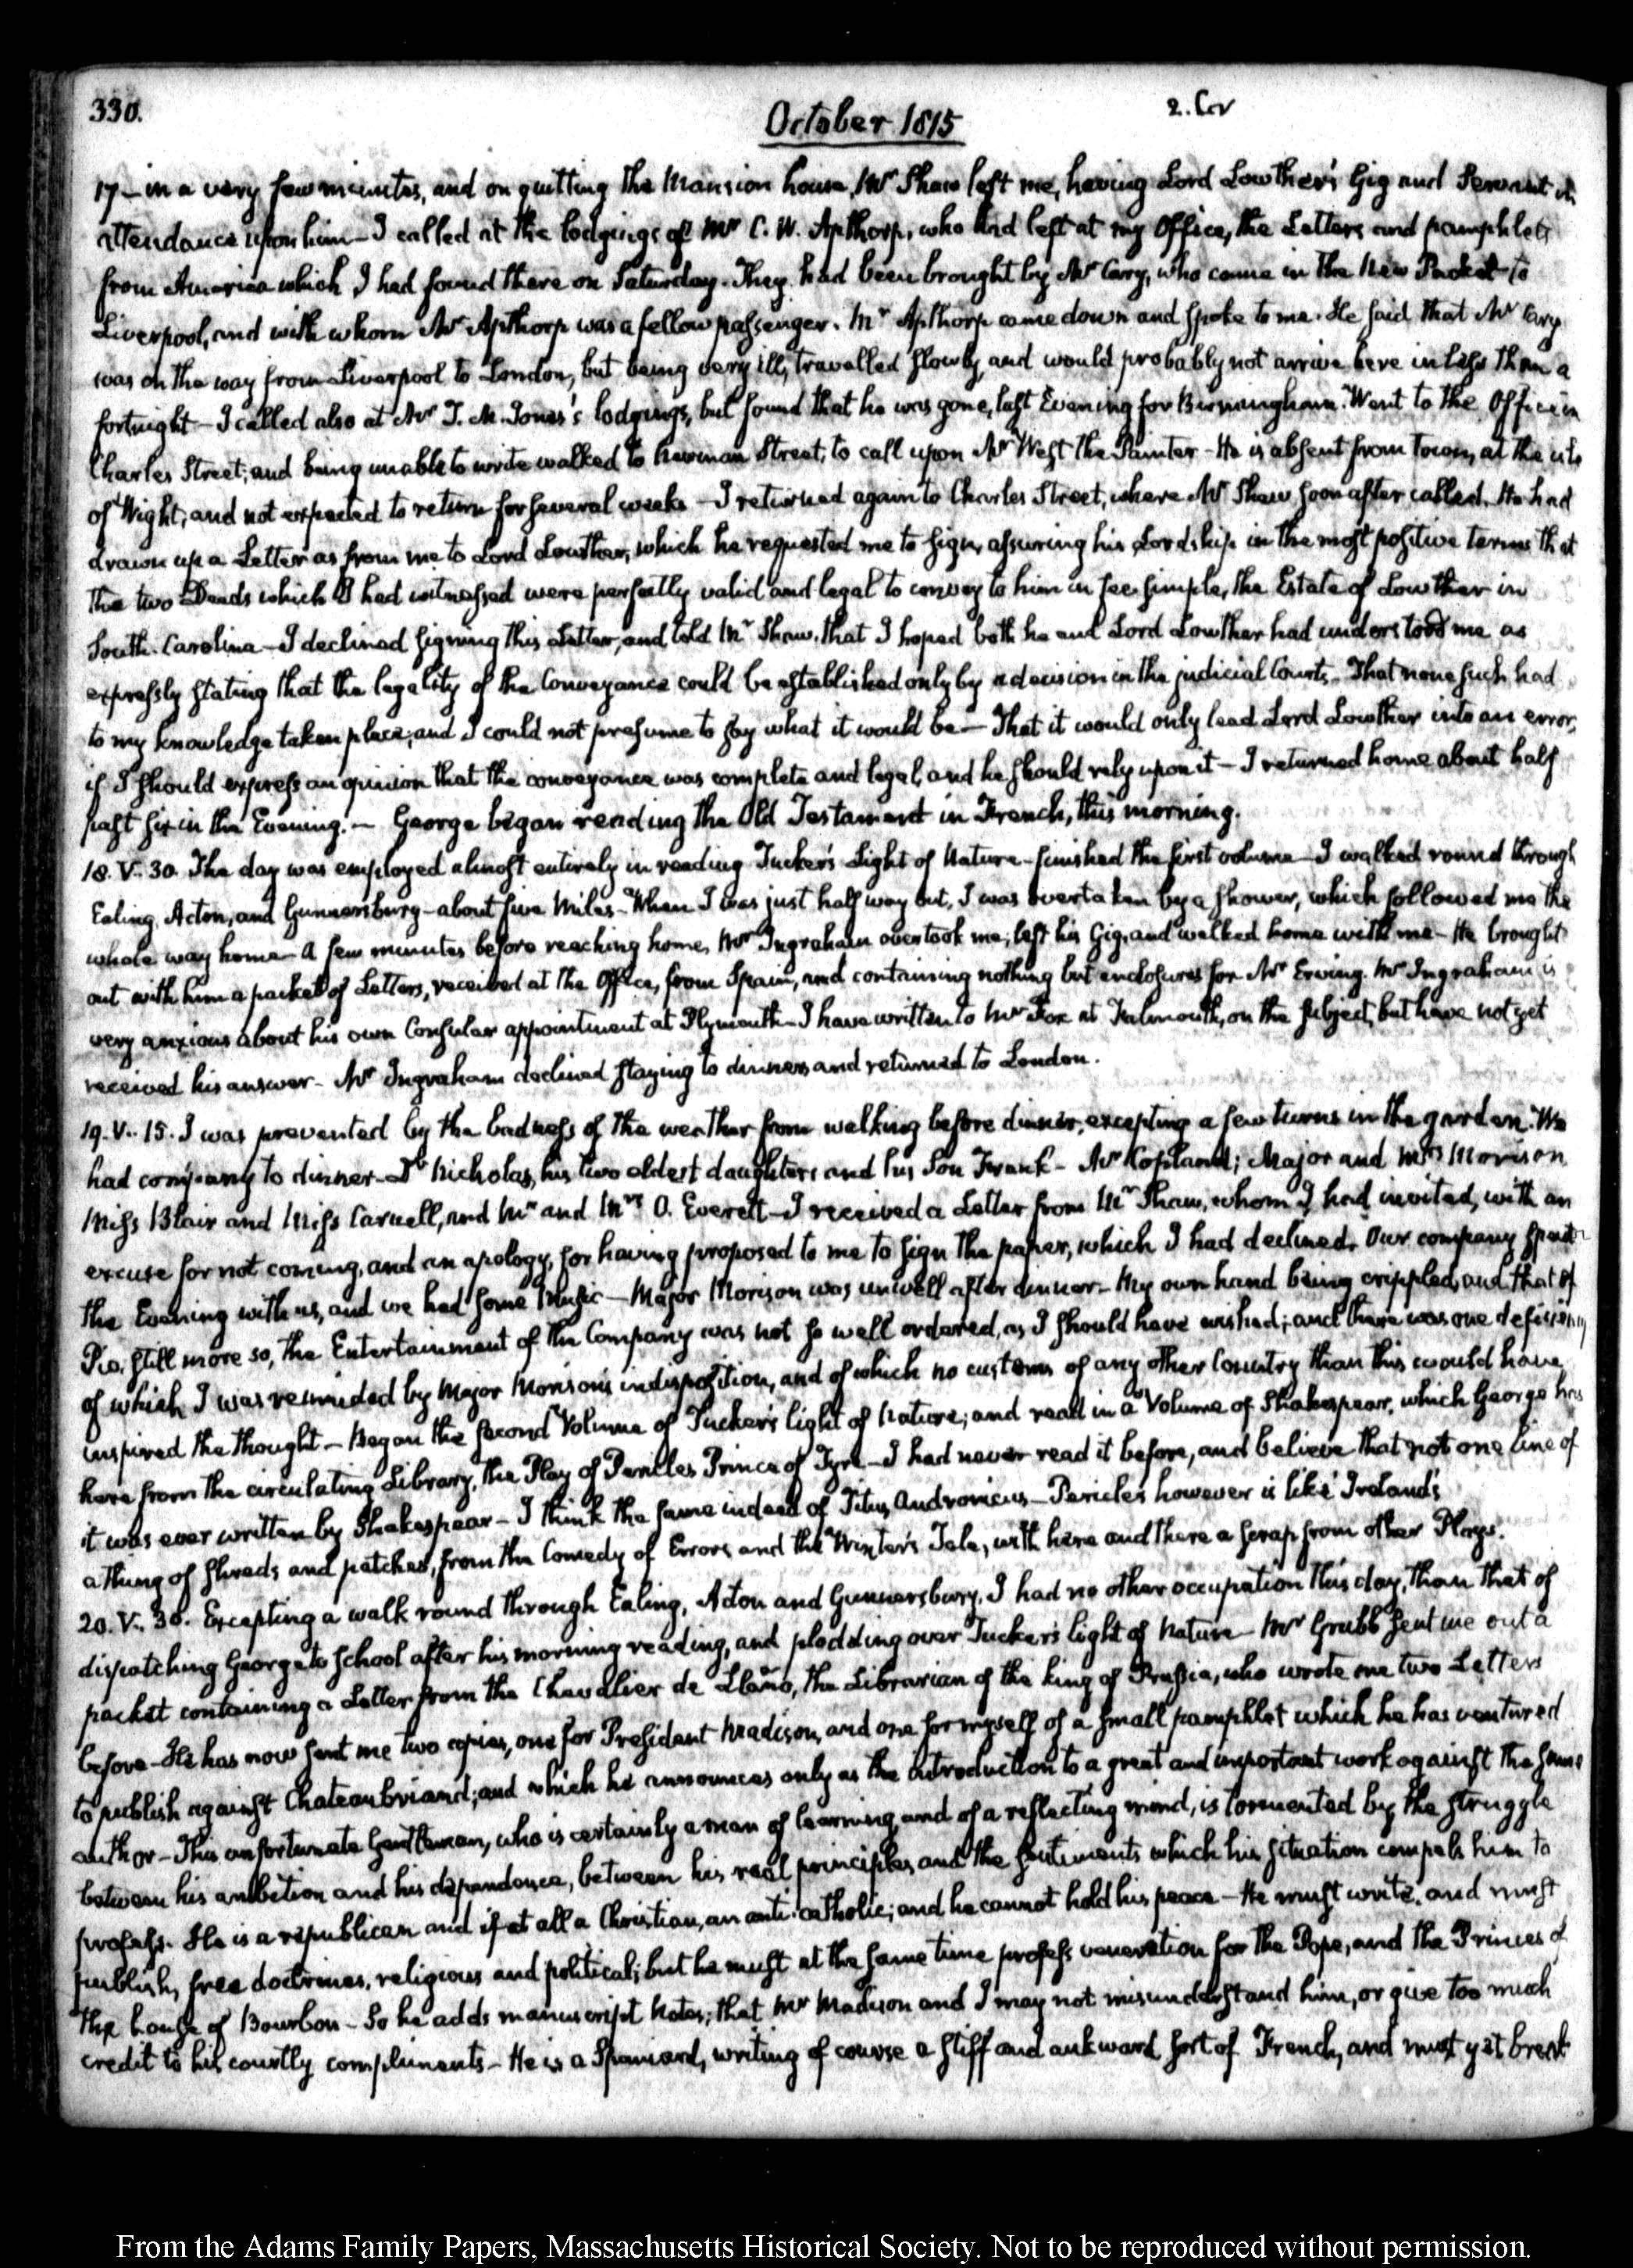 330.
October 1815
2. Cor
17 – in a very few minutes, and on quitting the Mansion house, Mr Shaw left me, having Lord Lowther's Gig and Servant in
attendance upon him – I called at the lodgings of Mr C. W. Apthorp, who had left at my Office, the Letters and pamphlets
from America which I had found there on Saturday. They had been brought by Mr Cary, who came in the New Packet to
Liverpool, and with whom Mr Apthorp was a fellow passenger. Mr Apthorp came down and spoke to me. He said that Mr Cary
was on the way from Liverpool to London, but being very ill, travelled slowly, and would probably not arrive here in less than a
fortnight – I called also at Mr T. M. Jones's lodgings, but found that he was gone, last Evening for Birmingham. Went to the Office in
Charles Street; and being unable to write walked to Newman Street, to call upon Mr West the Painter – He is absent from town, at the isle
of Wight; and not expected to return for several weeks – I returned again to Charles Street, where Mr Shaw soon after called. He had
drawn up a Letter as from me to Lord Lowther, which he requested me to sign, assuring his Lordship in the most positive terms that
the two Deeds which I had witnessed were perfectly valid and legal to convey to him in fee simple, the Estate of Lowther in
South-Carolina – I declined signing this Letter, and told Mr Shaw, that I hoped both he and Lord Lowther had understood me as
expressly stating that the legality of the Conveyance could be established only by a decision in the judicial Courts – That none such had
to my knowledge taken place; and I could not presume to say what it would be – That it would only lead Lord Lowther into an error,
if I should express an opinion that the conveyance was complete and legal, and he should rely upon it – I returned home about half
past six in the Evening. – George began reading the Old Testament in French, this morning.
18. V. 30. The day was employed almost entirely in reading Tucker's Light of Nature – finished the first volume – I walked round through
Ealing, Acton, and Gunnersbury – about five Miles – When I was just half way out, I was overtaken by a shower, which followed me the
whole way home – A few minutes before reaching home, Mr Ingraham overtook me, left his Gig, and walked home with me – He brought
out with him a packet of Letters, received at the Office, from Spain, and containing nothing but enclosures for Mr Erving. Mr Ingraham is
very anxious about his own Consular appointment at Plymouth – I have written to Mr Fox at Falmouth, on the subject, but have not yet
received his answer – Mr Ingraham declined staying to dinner and returned to London.
19. V. 15. I was prevented by the badness of the weather from walking before dinner, excepting a few turns in the garden. We
had company to dinner – Dr Nicholas, his two oldest daughters and his Son Frank – Mr Copland; Major and Mrs Morison
Miss Blair and Miss Carnell, and Mr and Mrs O. Everett – I received a Letter from Mr Shaw, whom I had invited, with an
excuse for not coming, and an apology, for having proposed to me to sign the paper, which I had declined. Our company spent
the Evening with us, and we had some Music – Major Morison was unwell after dinner – My own hand being crippled, and that of
still more so, the Entertainment of the Company was not so well ordered, as I should have wished; and there was one deficiency
of which I was reminded by Major Morison's indisposition, and of which no customs of any other Country than this would have
inspired the thought – Began the second Volume of Tucker's light of Nature; and read in a Volume of Shakespear, which George has
here from the circulating Library, the Play of Pericles Prince of Tyre – I had never read it before, and believe that not one line of
it was ever written by Shakespear – I think the same indeed of Titus Andronicus – Pericles however is like Ireland's
a thing of shreds and patches, from the Comedy of Errors and the Winter's Tale, with here and there a scrap from other Plays.
20. V. 30. Excepting a walk round through Ealing, Acton and Gunnersbury, I had no other occupation this day, than that of
dispatching George to school after his morning reading, and plodding over Tucker's light of Nature – Mr Grubb sent me out a
packet containing a Letter from the Chevalier de Llano, the Librarian of the king of Prussia, who wrote me two Letters
before – He has now sent me two copies, one for President Madison, and one for myself of a small pamphlet which he has ventured
to publish against Chateaubriand; and which he announces only as the introduction to a great and important work against the same
author – This unfortunate Gentleman, who is certainly a man of learning, and of a reflecting mind, is tormented by the struggle
between his ambition and his dependence, between his real principles and the sentiments which his situation compels him to
profess. He is a republican and if at all a Christian, an anti-catholic; and he cannot hold his peace – He must write, and must
publish, free doctrines, religious and political; but he must at the same time profess veneration for the Pope, and the Princes of
the house of Bourbon – So he adds manuscript Notes; that Mr Madison and I may not misunderstand him, or give too much
credit to his courtly compliments – He is a Spaniard, writing of course a stiff and aukward sort of French, and must yet break
From the Adams Family Papers, Massachusetts Historical Society. Not to be reproduced without permission.